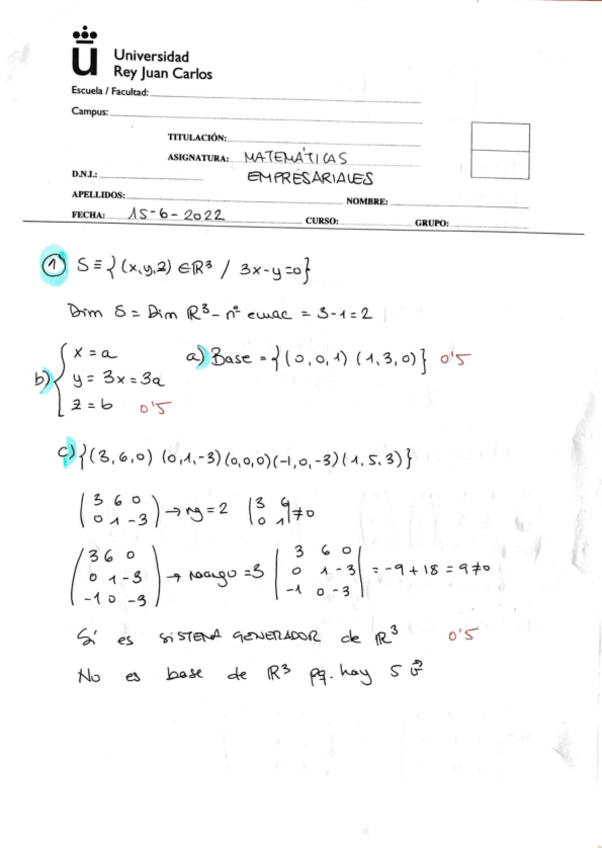 Universidad
Rey Juan Carlos
Escuela / Facultad:
Campus:
TITULACIÓN:
ASIGNATURA: MATEMÁTICAS
D.N.I.: EMPRESARIALES
APELLIDOS: NOMBRE:
FECHA: 15-6-2022 CURSO: GRUPO:
① S ≡ {(x,y,z) ∈ ℝ³ / 3x-y=0}
Dim S = Dim ℝ³ - nº ecuac = 3-1=2
b) { x = a
y = 3x = 3a
z = b 0'5
a) Base = {(0,0,1) (1,3,0)} 0'5
c) {(3,6,0) (0,1,-3) (0,0,0) (-1,0,-3) (1,5,3)}
(3 6 0
0 1 -3) → rg = 2 |3 6
0 1| ≠0
(3 6 0
0 1 -3
-1 0 -3) → rango = 3 |3 6 0
0 1 -3
-1 0 -3| = -9+18 = 9≠0
Sí es SISTEMA GENERADOR de ℝ³ 0'5
No es base de ℝ³ pq. hay 5 v⃗